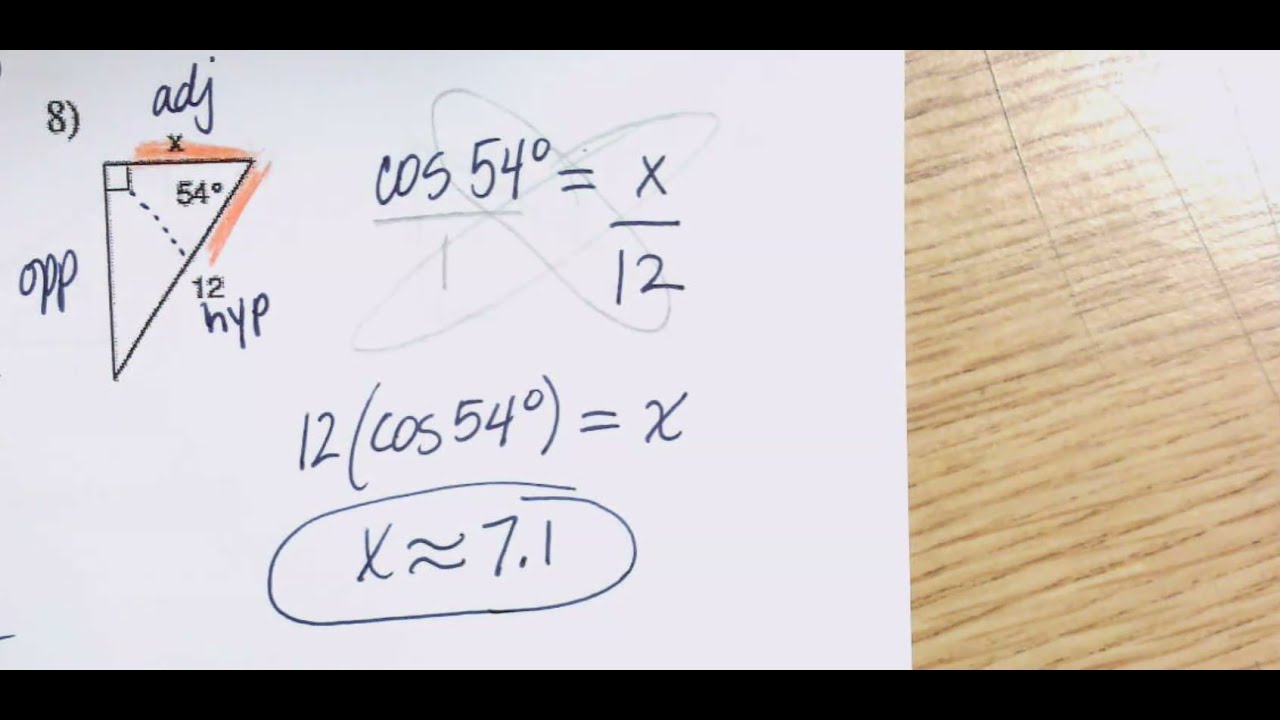 8)
adj
x
54°
opp
12
hyp
cos 54° = x
1 12
12(cos 54°) = x
x ≈ 7.1